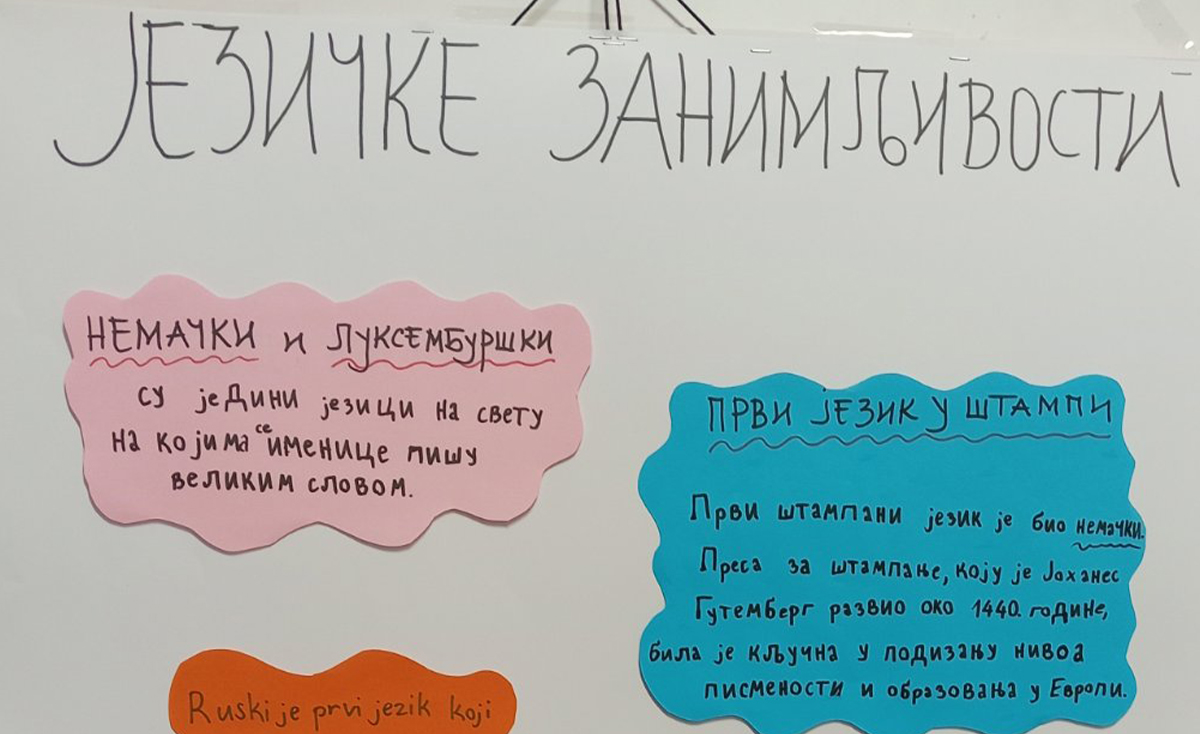 ЈЕЗИЧКЕ ЗАНИМЉИВОСТИ
НЕМАЧКИ и ЛУКСЕМБУРШКИ
су једини језици на свету
на којима се именице пишу
великим словом.
ПРВИ ЈЕЗИК У ШТАМПИ
Први штампани језик је био немачки.
Преса за штампање, коју је Јоханес
Гутемберг развио око 1440. године,
била је кључна у подизању нивоа
писмености и образовања у Европи.
Ruski je prvi jezik koji